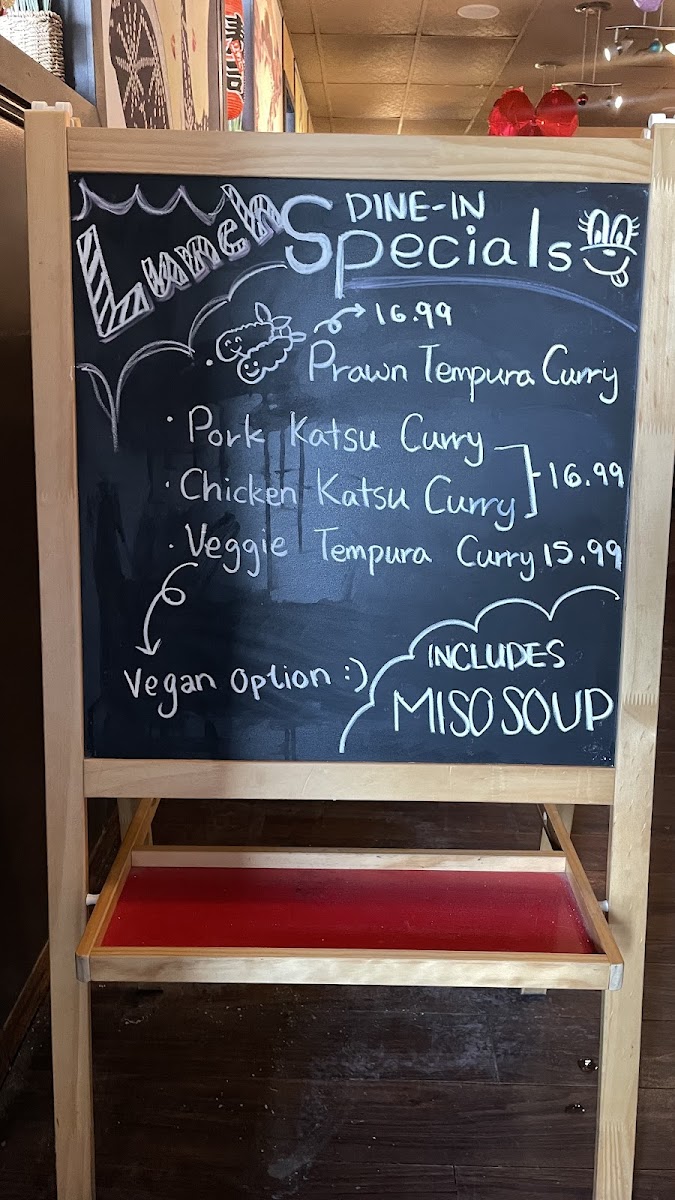 Lunch DINE-IN Specials
16.99
Prawn Tempura Curry
· Pork Katsu Curry
· Chicken Katsu Curry 16.99
· Veggie Tempura Curry 15.99
Vegan option :)
INCLUDES
MISO SOUP